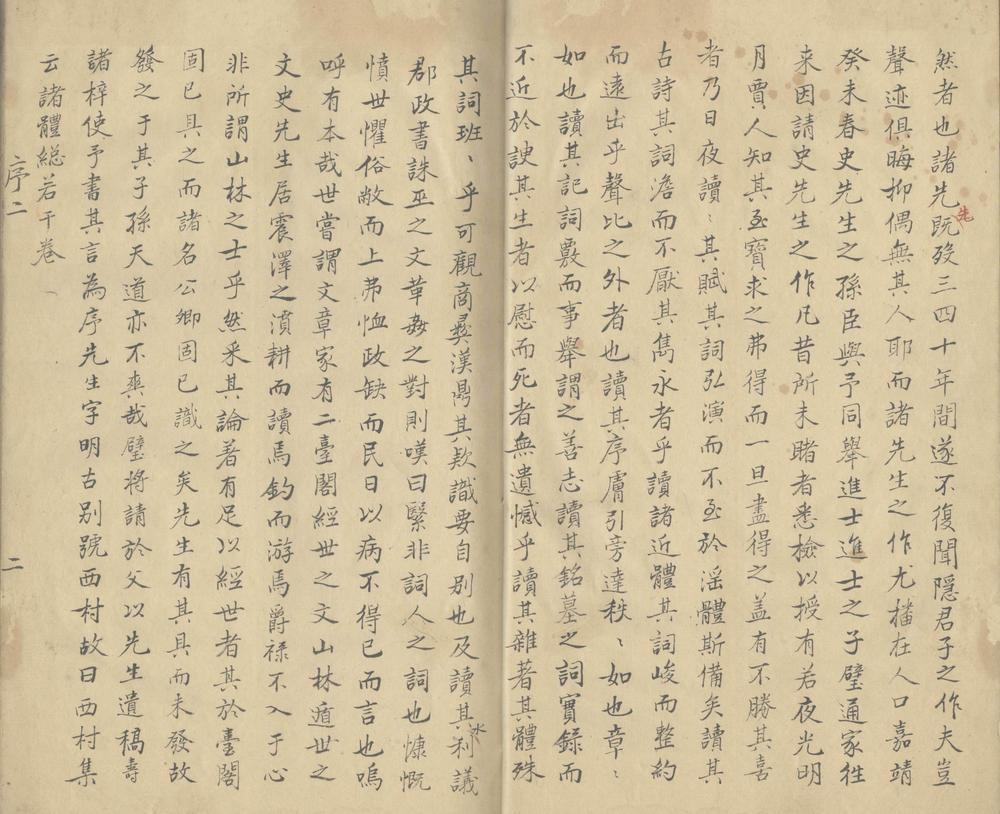 然者也諸先既歿三四十年間遂不復聞隱君子之作夫豈
先
聲迹俱晦抑偶無其人耶而諸先生之作尤播在人口嘉靖
癸未春史先生之孫臣與予同舉進士進士之子璧通家徃
来因請史先生之作凡昔所未睹者悉檢以授有若夜光明
月賈人知其至寳求之弗得而一旦盡得之葢有不勝其喜
者乃日夜讀〻其賦其詞弘演而不至於滛體斯備矣讀其
古詩其詞澹而不厭其雋永者乎讀諸近體其詞峻而整約
而遠出乎聲比之外者也讀其序膚引旁達秩〻如也章〻
如也讀其記詞覈而事舉謂之善志讀其銘墓之詞實録而
不近於諛其生者以慰而死者無遺憾乎讀其雜著其體殊
其詞班〻乎可觀商彝漢鼎其欵識要自别也及讀其利議
水
郡政書誅巫之文革姦之對則嘆曰緊非詞人之詞也慷慨
憤世懼俗敝而上弗恤政缺而民日以病不得已而言也嗚
呼有本哉世嘗謂文章家有二臺閣經世之文山林遁世之
文史先生居震澤之濆耕而讀焉釣而游焉爵禄不入于心
非所謂山林之士乎然采其論著有足以經世者其於臺閣
固已具之而諸名公卿固已識之矣先生有其具而未發故
發之于其子孫天道亦不爽哉璧將請於父以先生遺稿壽
諸梓使予書其言為序先生字明古别號西村故曰西村集
云諸體總若干卷
序二
二